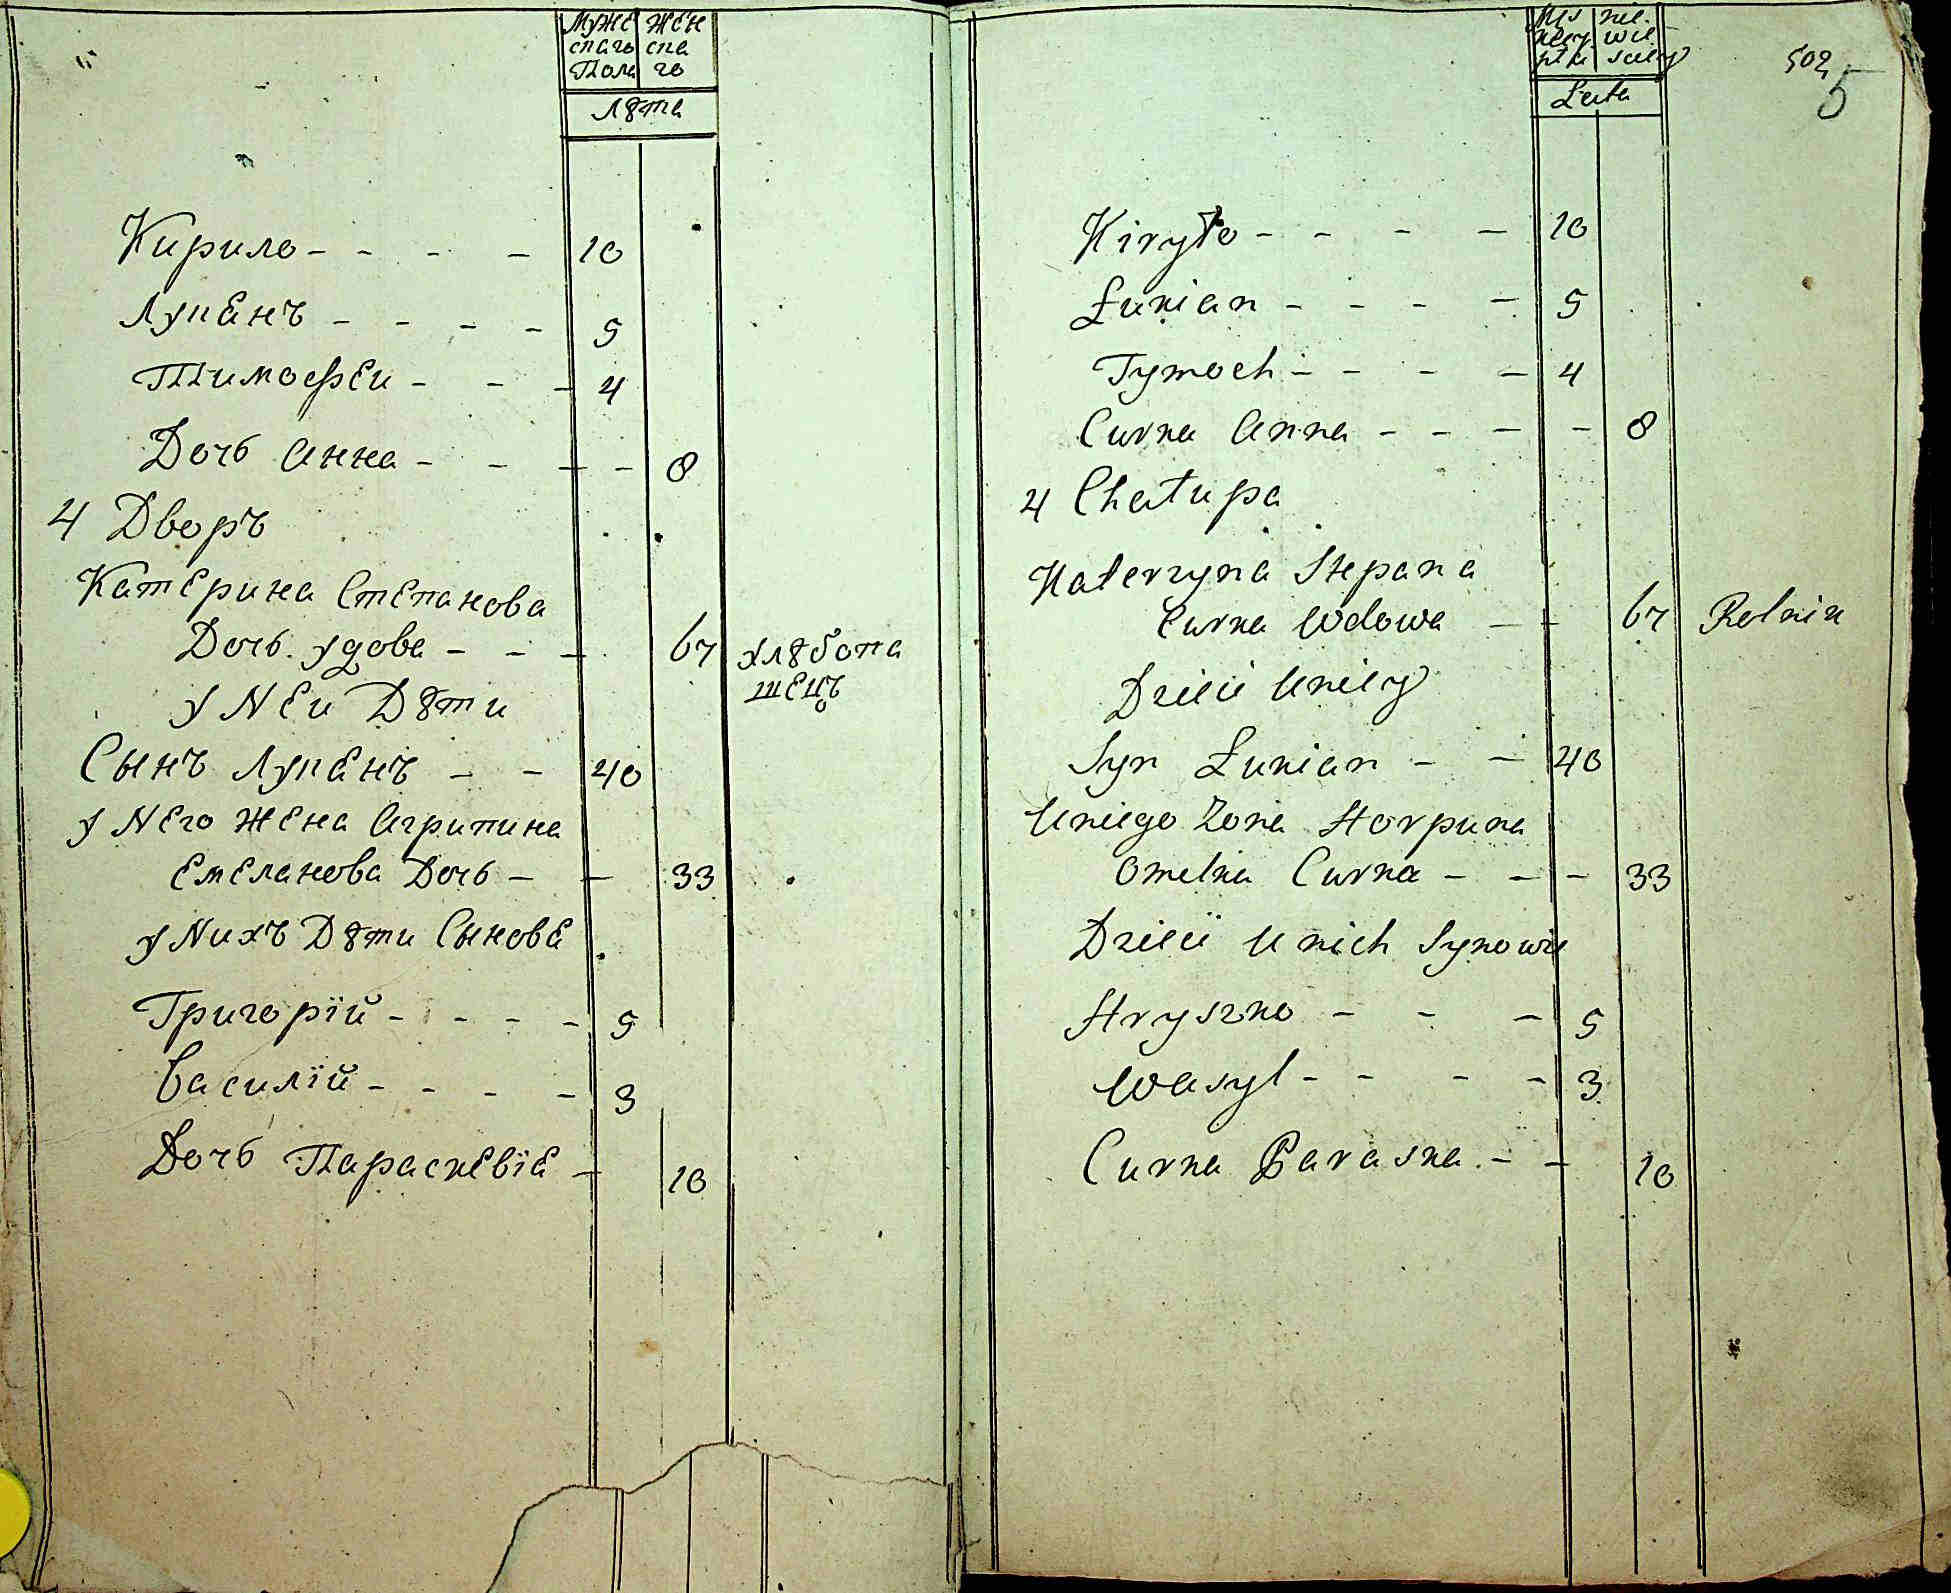 Муже Жен
скаго ска
Пола го
Лѣта
Кирило - - - - 10
Лукѧнъ - - - - 5
Тимоѳеи - - - 4
Дочь Анна - - - - 8
4 Дворъ
Катерина Степанова
Дочь удова - - - 67 хлѣбопа
шецъ
у Неи Дѣти
Сынъ Лукѧнъ - - 40
у Него Жена Агрипина
Емелѧнова Дочь - - 33
у Нихъ Дѣти Сынове
Григорїй - - - - 5
Василїй - - - - 3
Дочь Параскевїѧ - 10
502
5
Lata
Kiryło - - - - 10
Łukian - - - - 5
Tymoch - - - - 4
Curka Anna - - - - 8
4 Chałupa
Katerzyna Stepana
Curka Wdowa - - 67 Rolnik
Dzieci Uniey
Syn Łukian - - 40
Uniego Żona Horpuna
Omelka Curka - - - 33
Dzieci Unich Synowie
Hryszko - - - 5
Wasyl - - - - 3
Curka Paraska - - 10